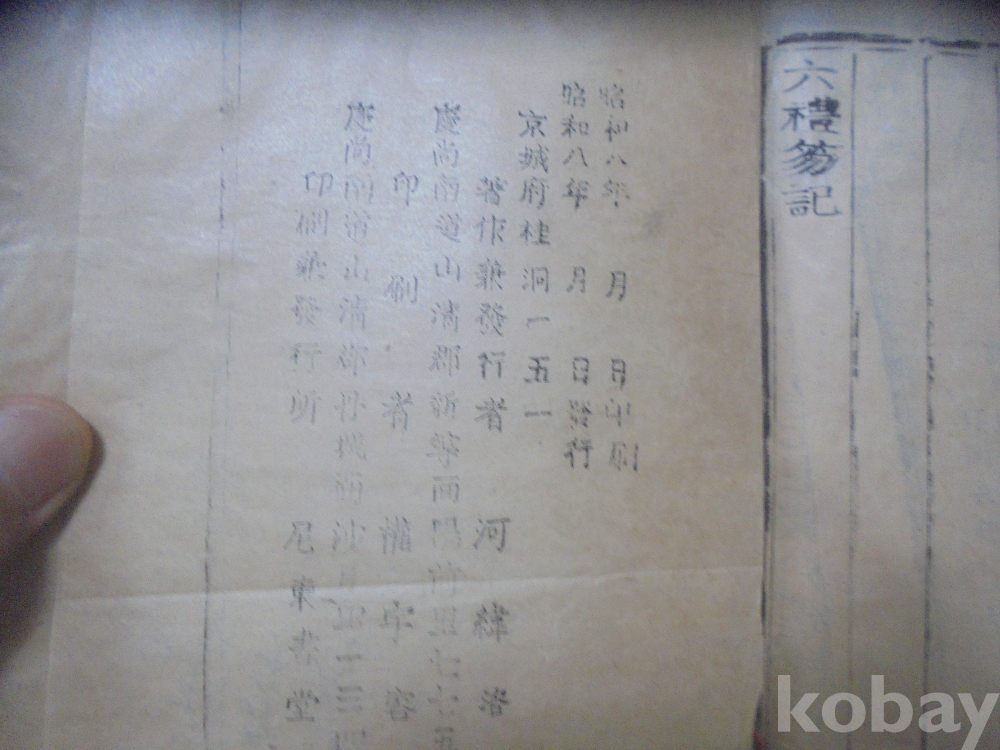 六禮笏記
昭和八年 月 日印刷
昭和八年 月 日發行
京城府桂洞一五一
著作兼發行者 河 緯 洛
慶尚南道山淸郡新等面 里七七五
印 刷 者 權 寧 容
慶尚南道山淸郡丹城面沙月里一三四
印刷兼發行所 尼東書堂
kobay